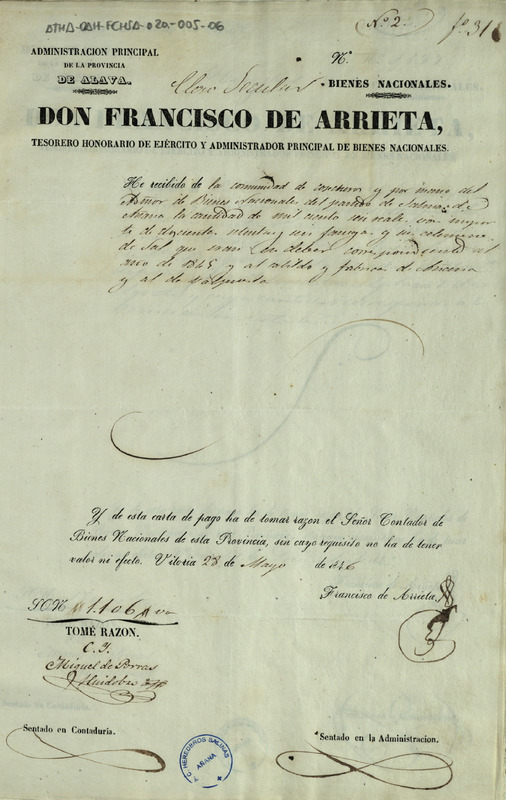 ATHA-DAH-FCHSA-020-005-06
Nº 2.
fº 31
ADMINISTRACION PRINCIPAL
DE LA PROVINCIA
DE ALAVA.
Nº
Clero Secular
BIENES NACIONALES.
DON FRANCISCO DE ARRIETA,
TESORERO HONORARIO DE EJÉRCITO Y ADMINISTRADOR PRINCIPAL DE BIENES NACIONALES.
He recibido de la comunidad de y por mano del
de Bienes Nacionales del partido de Salinas de
Anana la cantidad de mil ciento seis reales von
de doscientas fanegas y un celemin
de sal que han de correspondiente al
año de 1845 y al cabildo y fabrica de
y al de Valpuesta
Y de esta carta de pago ha de tomar razon el Señor Contador de
Bienes Nacionales de esta Provincia, sin cuyo requisito no ha de tener
valor ni efecto. Vitoria 28 de Mayo de 1846
Francisco de Arrieta.
SON 1.106 von
TOMÉ RAZON.
C. I.
Miguel de Porras
y Huidobro
Sentado en Contaduría.
Sentado en la Administracion.
HEREDEROS SALINAS
AÑANA